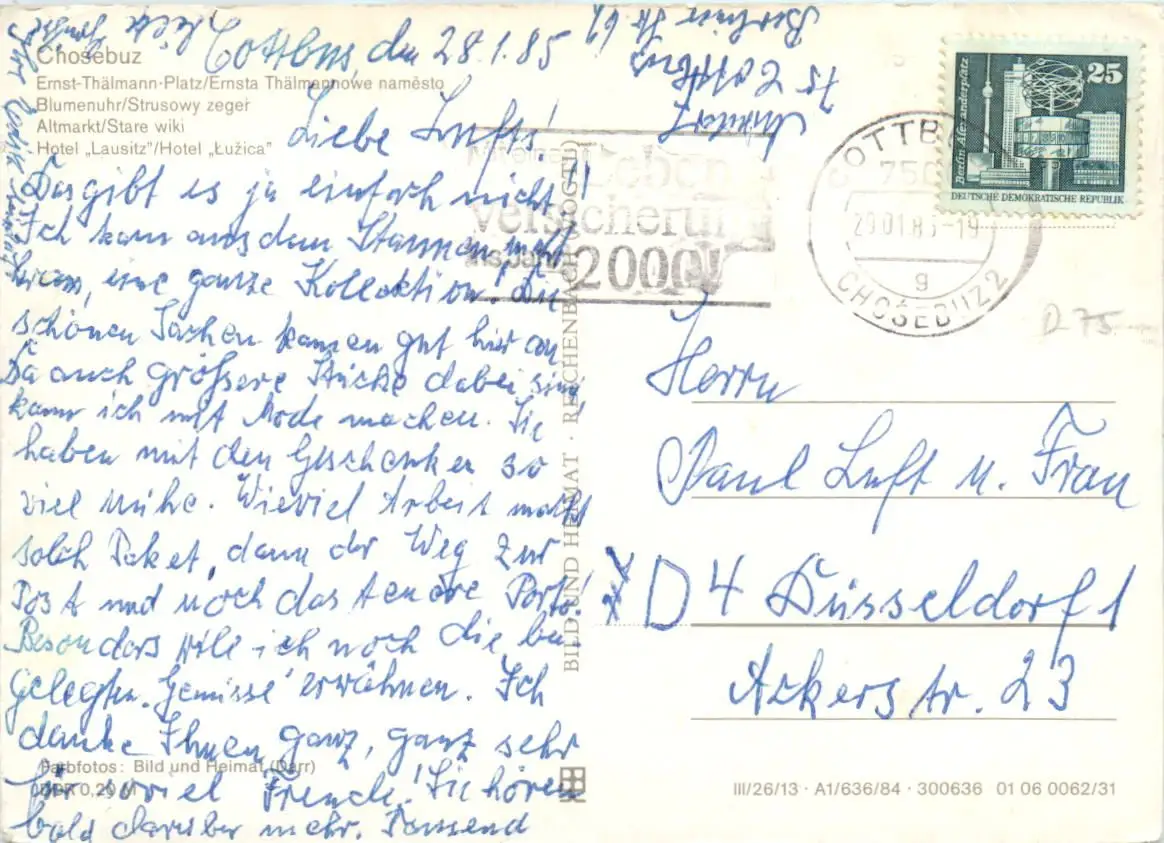 Chośebuz
Ernst-Thälmann-Platz/Ernsta Thälmannowe naměsto
Blumenuhr/Strusowy zeger
Altmarkt/Stare wiki
Hotel „Lausitz"/Hotel „Łužica"
Cottbus, den 28.1.85
Liebe Lufts!
Das gibt es ja einfach nicht!
Ich kam aus dem Staunen nicht
heraus, eine ganze Kollektion! Die
schönen Sachen kamen gut hier an.
Da auch grössere Stücke dabei sind
kann ich mit Mode machen. Sie
haben mit den Geschenken so
viel Mühe. Wieviel Arbeit macht
solch Paket, dann der Weg zur
Post und noch das teure Porto!
Besonders will ich noch die bei
gelegten "Genüsse" erwähnen. Ich
danke Ihnen ganz, ganz sehr
für soviel Freude! Sie hören
bald darüber mehr. Tausend
75 Cottbus
Berliner Str
Farbfotos: Bild und Heimat (Darr)
DDR 0,20 M
BILD UND HEIMAT · REICHENBACH (VOGTL)
Leben
versicherun
ins Jahr 2000!
COTTBUS
750
29.01.85-19
g
CHOŚEBUZ 2
Berlin, Alexanderplatz
25
DEUTSCHE DEMOKRATISCHE REPUBLIK
D 75
Herrn
Paul Luft u. Frau
D 4 Düsseldorf 1
Ackerstr. 23
III/26/13 · A1/636/84 · 300636 01 06 0062/31